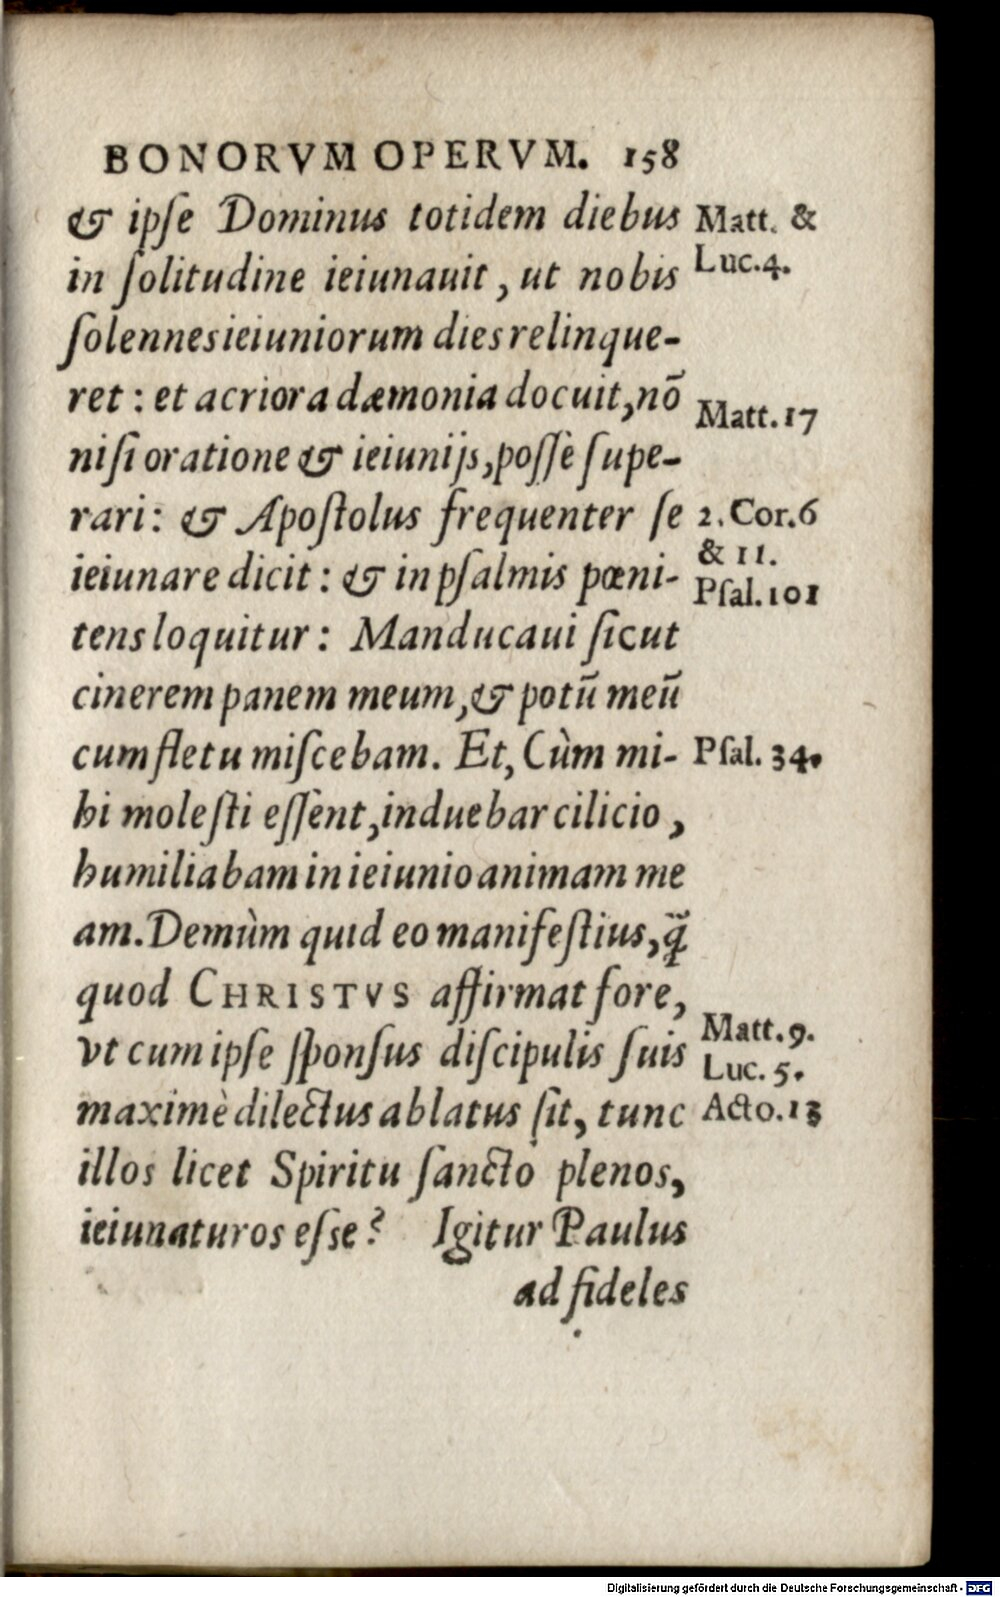 BONORVM OPERVM. 158
& ipſe Dominus totidem diebus
Matt. &
Luc.4.
in ſolitudine ieiunauit, ut nobis
ſolennes ieiuniorum dies relinque-
ret: et acriora dæmonia docuit, nō
Matt.17
niſi oratione & ieiunijs, poſſè ſupe-
rari: & Apoſtolus frequenter ſe
2. Cor.6
& 11.
ieiunare dicit: & in pſalmis pœni-
Pſal.101
tens loquitur: Manducaui ſicut
cinerem panem meum, & potū meū
cum fletu miſcebam. Et, Cùm mi-
Pſal. 34.
hi moleſti eſſent, induebar cilicio,
humiliabam in ieiunio animam me
am. Demùm quid eo manifeſtius, q̃
quod CHRISTVS affirmat fore,
vt cum ipſe ſponſus diſcipulis ſuis
Matt.9.
Luc. 5.
maximè dilectus ablatus ſit, tunc
Acto.13
illos licet Spiritu ſancto plenos,
ieiunaturos eſse? Igitur Paulus
ad fideles
Digitalisierung gefördert durch die Deutsche Forschungsgemeinschaft - DFG